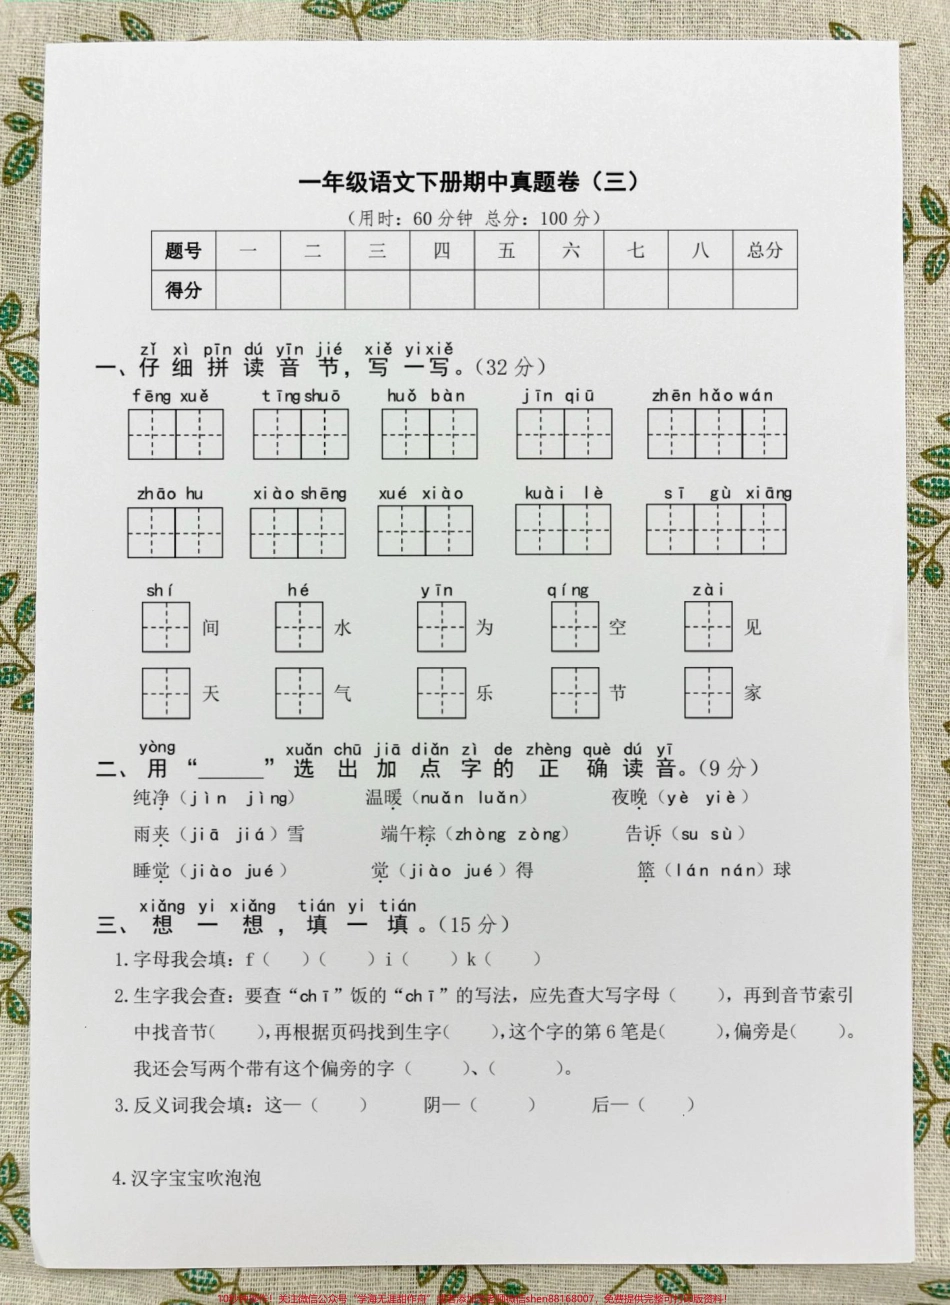 一年级语文下册期中真题卷（三）
（用时：60 分钟 总分：100 分）
题号 一 二 三 四 五 六 七 八 总分
得分
zǐ xì pīn dú yīn jié xiě yi xiě
一、仔细拼读音节，写一写。（32 分）
fēng xuě tīng shuō huǒ bàn jīn qiū zhēn hǎo wán
zhāo hu xiào shēng xué xiào kuài lè sī gù xiāng
shí hé yīn qíng zài
间 水 为 空 见
天 气 乐 节 家
yòng xuǎn chū jiā diǎn zì de zhèng què dú yī
二、用“_____”选出加点字的正确读音。（9 分）
纯净（jìn jìng） 温暖（nuǎn luǎn） 夜晚（yè yiè）
雨夹（jiā jiá）雪 端午粽（zhòng zòng） 告诉（su sù）
睡觉（jiào jué） 觉（jiào jué）得 篮（lán nán）球
xiǎng yi xiǎng tián yi tián
三、想一想，填一填。（15 分）
1.字母我会填：f（ ）（ ）i（ ）k（ ）
2.生字我会查：要查“chī”饭的“chī”的写法，应先查大写字母（ ），再到音节索引
中找音节（ ），再根据页码找到生字（ ），这个字的第 6 笔是（ ），偏旁是（ ）。
我还会写两个带有这个偏旁的字（ ）、（ ）。
3.反义词我会填：这—（ ） 阴—（ ） 后—（ ）
4.汉字宝宝吹泡泡